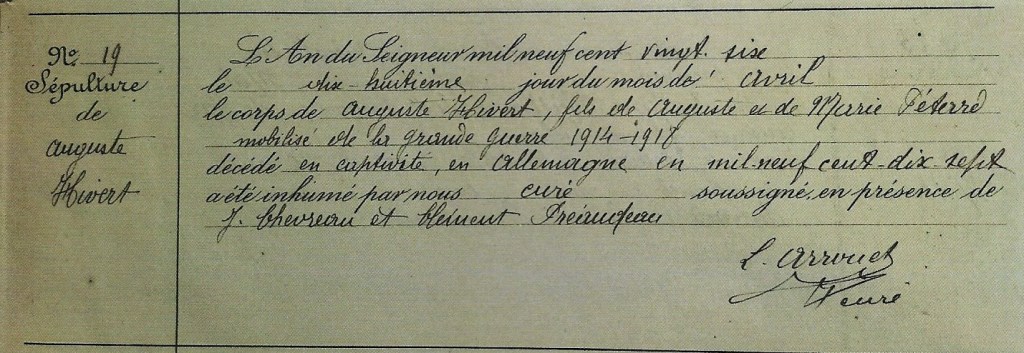 No. 19
Sépulture
de
Auguste
Hivert
L'An du Seigneur mil neuf cent vingt six
le dix-huitième jour du mois de avril
le corps de Auguste Hivert, fils de Auguste et de Marie Péterre
mobilisé de la grande guerre 1914-1918
décédé en captivité, en Allemagne en mil neuf cent dix sept
a été inhumé par nous curé soussigné, en présence de
J. Chevreau et Clément Préaudeau
L. Arrouet
curé